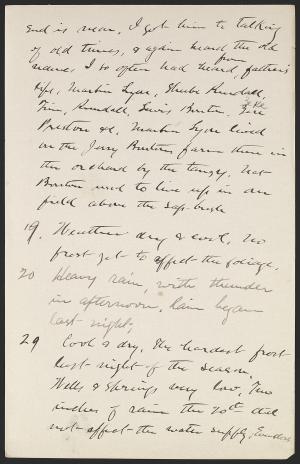 End is near. I get him to talking
of old times, & again heard the old
names, I so often had heard from father's
lips, Martin Lyon, Shube Kendall,
Tim Kendall, Lewis Bouton,
Preston &c, Martin Lyon lived
on the Jerry Bouton farm there in
the orchard by the tansy, Nat
Bouton used to live up in our
field above the sap-bush
19. Weather dry & cool, No
frost yet to affect the foliage.
20 Heavy rain, with thunder
in afternoon, Rain began
last night,
29 Cool & dry, The hardest frost
last night of the season,
Wells & springs very low, Two
inches of rain the 20th did
not affect the water supply,